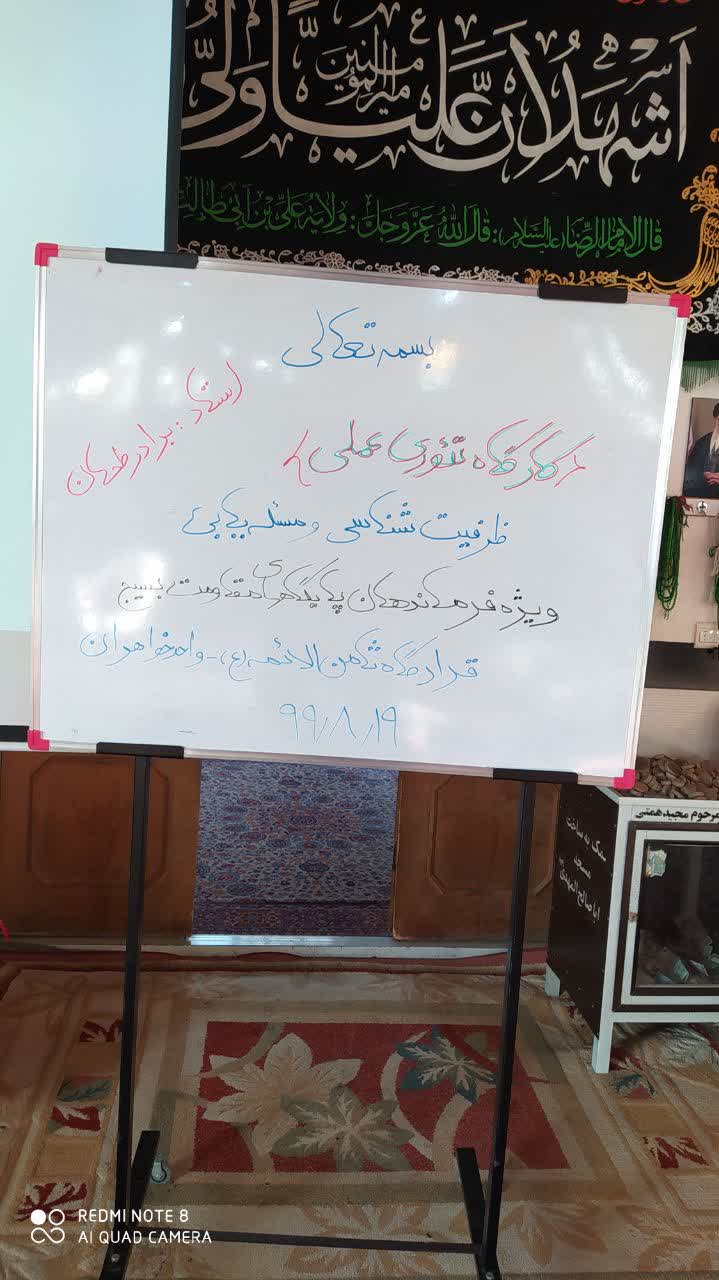 اشهد ان علیاً ولی
امیرالمؤمنین
قال الامام الرضا (علیه السلام): قال الله عز و جل: ولایة علی بن ابی طالب
بسمه تعالی
استاد: برادر طحان
کارگاه تئوری عملی
ظرفیت شناسی و مسئله یابی
ویژه فرماندهان پایگاههای مقاومت بسیج
قرارگاه ثامن الائمه (ع) - واحد خواهران
۹۹/۸/۱۹
مرحوم مجید همتی
کمک به ساخت
مسجد
اباصالح المهدی
REDMI NOTE 8
AI QUAD CAMERA